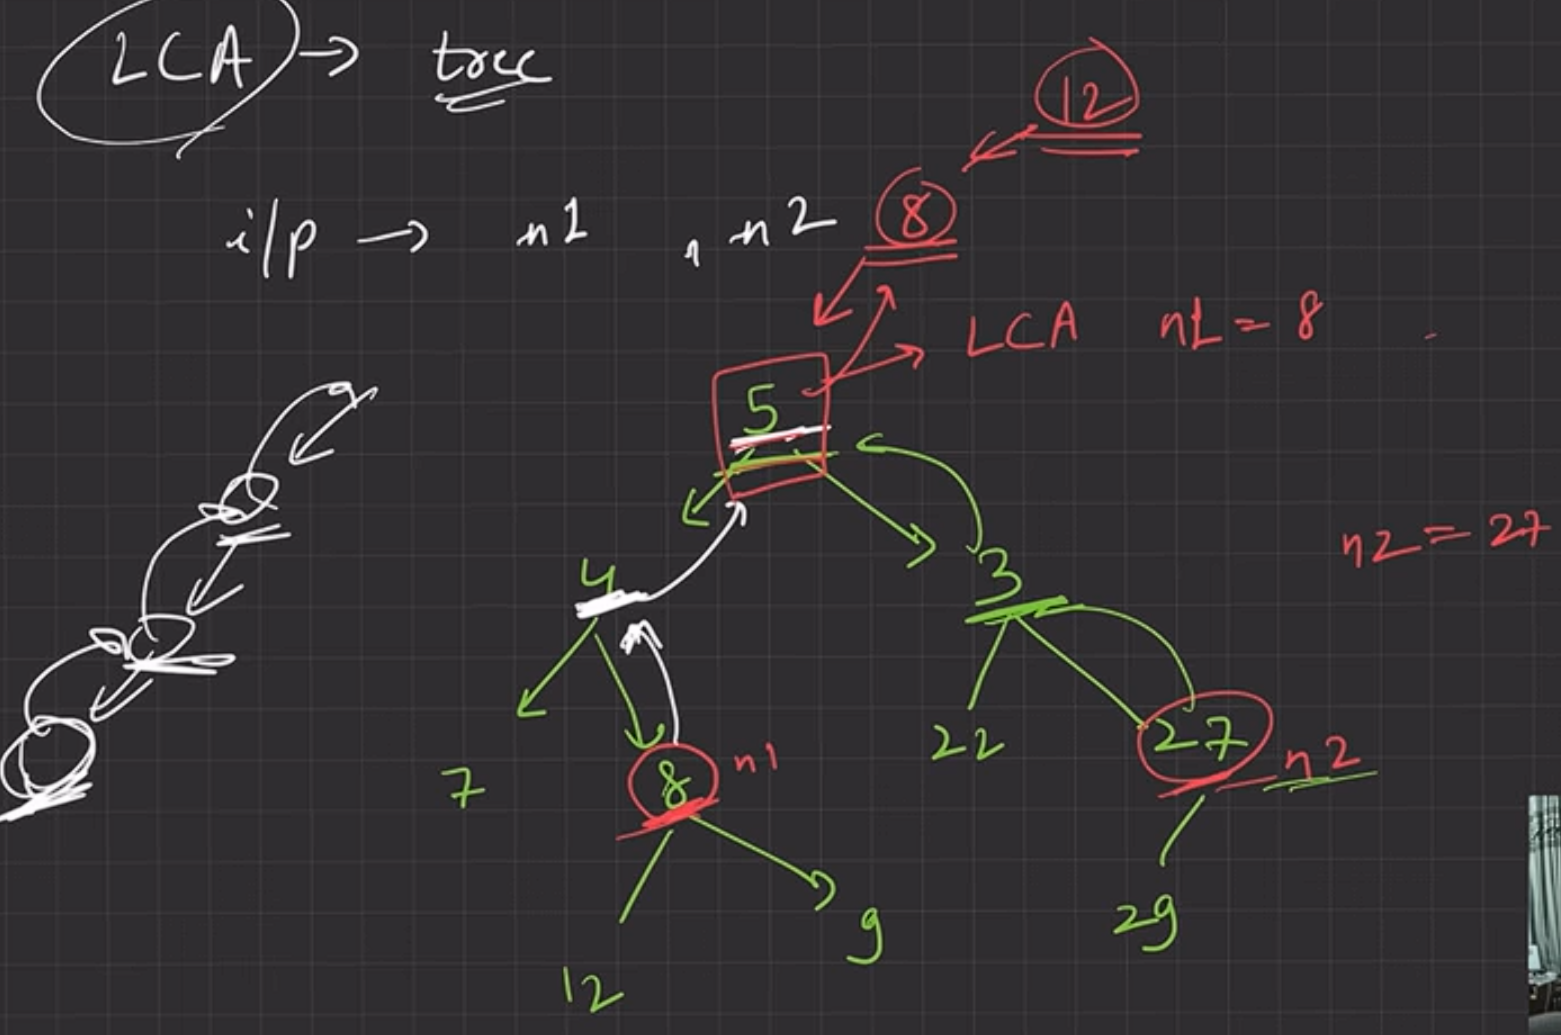 LCA → tree
12
i/p → n1 , n2
8
LCA n1 = 8
5
n2 = 27
4
3
7
8 n1
22
27 n2
12
9
29